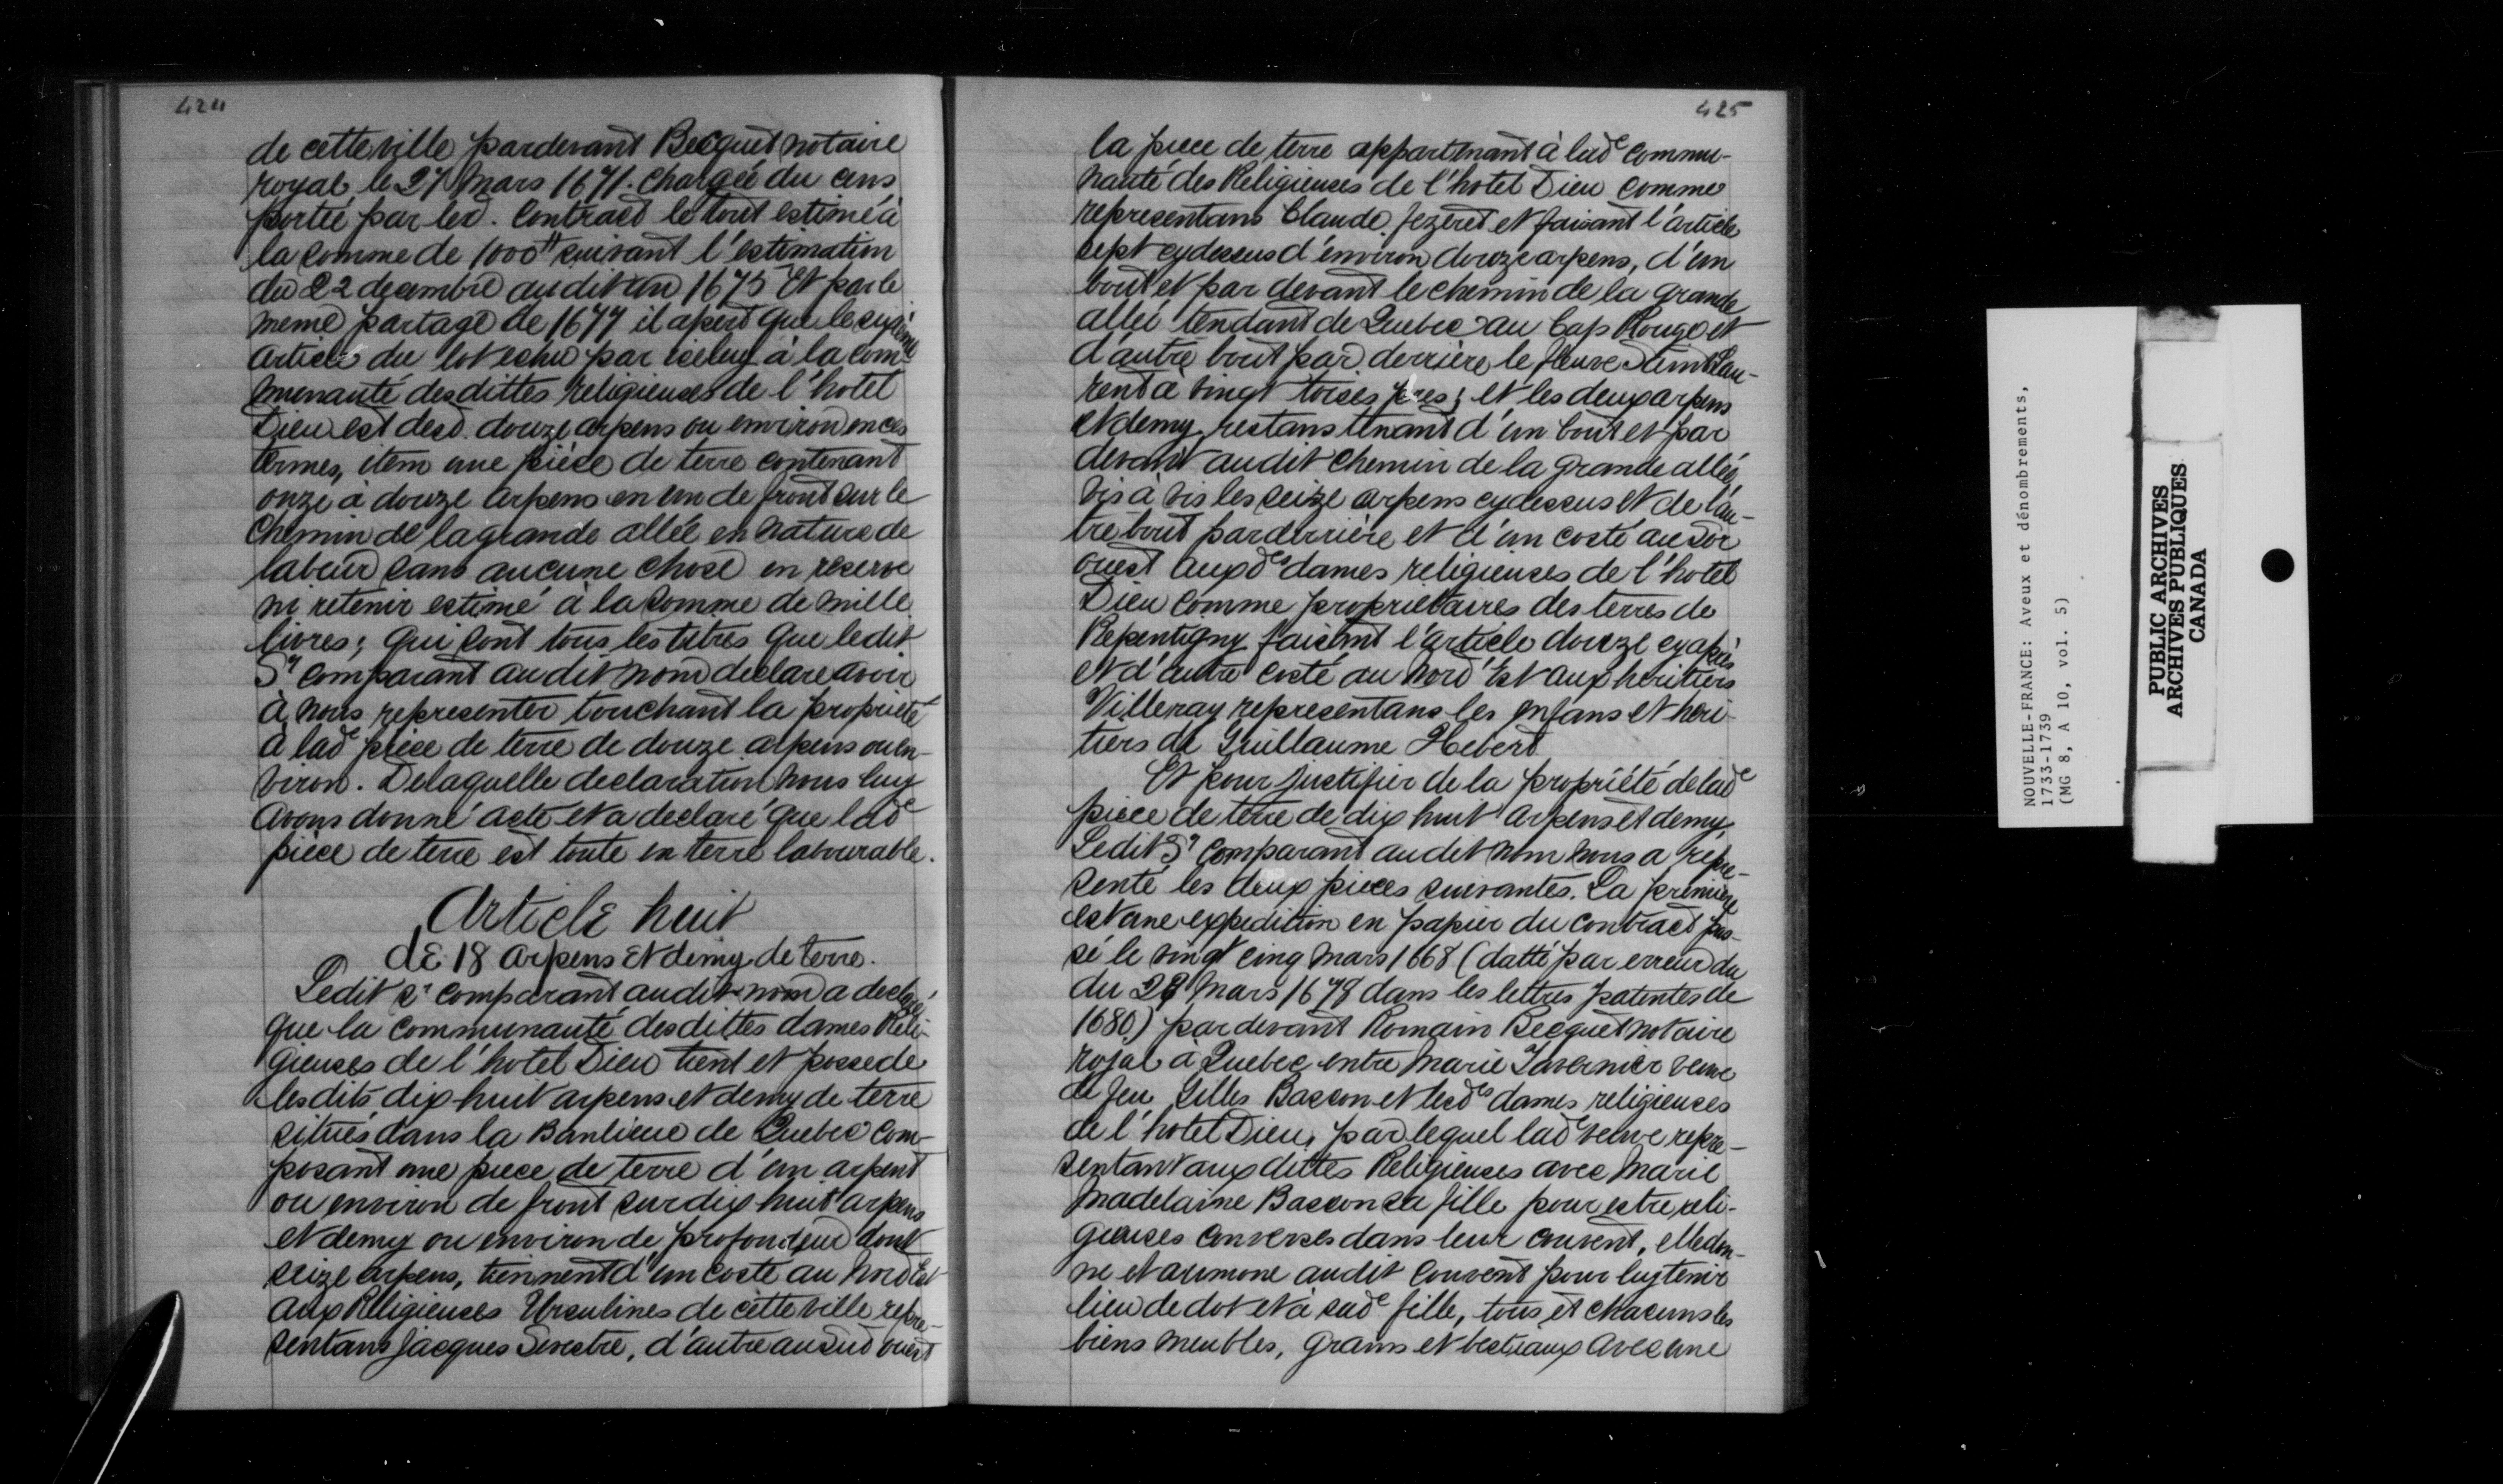 424
de cette ville pardevant Becquet notaire
royal, le 27 Mars 1671. Chargée du cens
portée par led. Contract le tout estimé à
la somme de 1000tt suivant l'estimation
du 22 decembre audit an 1675 Et par le
meme partage de 1677 il apert que le sixième
article du lot echu par iceluy à la com
munauté desdittes religieuses de l'hotel
Dieu est desd. douze arpens ou environ en ces
termes, item une pièce de terre contenant
onze à douze arpens en un de front sur le
Chemin de la grande allée en nature de
labeur sans aucune chose en reserve
ni retenir estimé à la somme de mille
livres; qui sont tous les titres que ledit
Sr comparant audit nom declare avoir
à nous representer touchant la propriété
à lade pièce de terre de douze arpens ou en-
viron. Delaquelle declaration nous luy
avons donné acte et a declaré que lade
pièce de terre est toute en terre labourable.
Article huit
de 18 arpens et demy de terre.
Ledit Sr comparant audit nom a declaré
que la communauté desdittes dames Reli-
gieuses de l'hotel Dieu tient et possede
lesdits dix huit arpens et demy de terre
situés dans la Banlieue de Quebec com-
posant une piece de terre d'un arpent
ou environ de front sur dix huit arpens
et demy ou environ de profondeur dont
seize arpens, tiennent d'un costé au Nord Est
aux Religieuses Ursulines de cette ville repre-
sentans Jacques Sevestre, d'autre au sud ouest
425
la piece de terre appartenant à lade commu-
nauté des Religieuses de l'hotel Dieu comme
representans Claude Jezeret et faisant l'article
sept cydessus d'environ douze arpens, d'un
bout et par devant le chemin de la grande
allée tendant de Quebec au Cap Rouge et
d'autre bout par derrière le fleuve Saint Lau-
rent à vingt toises pres; et les deux arpens
et demy restans tenant d'un bout et par
devant audit chemin de la grande allée,
vis à vis les seize arpens cydessus et de l'au-
tre bout par derrière et d'un costé au Sor
ouest auxdes dames religieuses de l'hotel
Dieu comme proprietaires des terres de
Repentigny faisant l'article douze cy après
et d'autre costé au Nord Est aux heritiers
Villeray representans les enfans et heri-
tiers de Guillaume Hebert
Et pour justifier de la propriété de lade
piece de terre de dix huit arpens et demy,
Ledit Sr comparant audit nom nous a repre-
senté les deux pieces suivantes. La première
est une expedition en papier du contract pas-
sé le vingt cinq mars 1668 (datté par erreur du
du 28 Mars 1678 dans les lettres patentes de
1680) pardevant Romain Becquet notaire
royal à Quebec entre Marie Tavernier veuve
de feu Gilles Bacson et lesdes dames religieuses
de l'hotel Dieu, par lequel lade veuve repre-
sentant aux dittes Religieuses avec Marie
Madelaine Bacson sa fille pour estre reli-
gieuses converses dans leur couvent, elle don-
ne et aumone audit couvent pour luy tenir
lieu de dot et à sade fille, tous et chacuns les
biens meubles, grains et bestiaux avec une
NOUVELLE-FRANCE: Aveux et dénombrements,
1733-1739
(MG 8, A 10, vol. 5)
PUBLIC ARCHIVES
ARCHIVES PUBLIQUES
CANADA